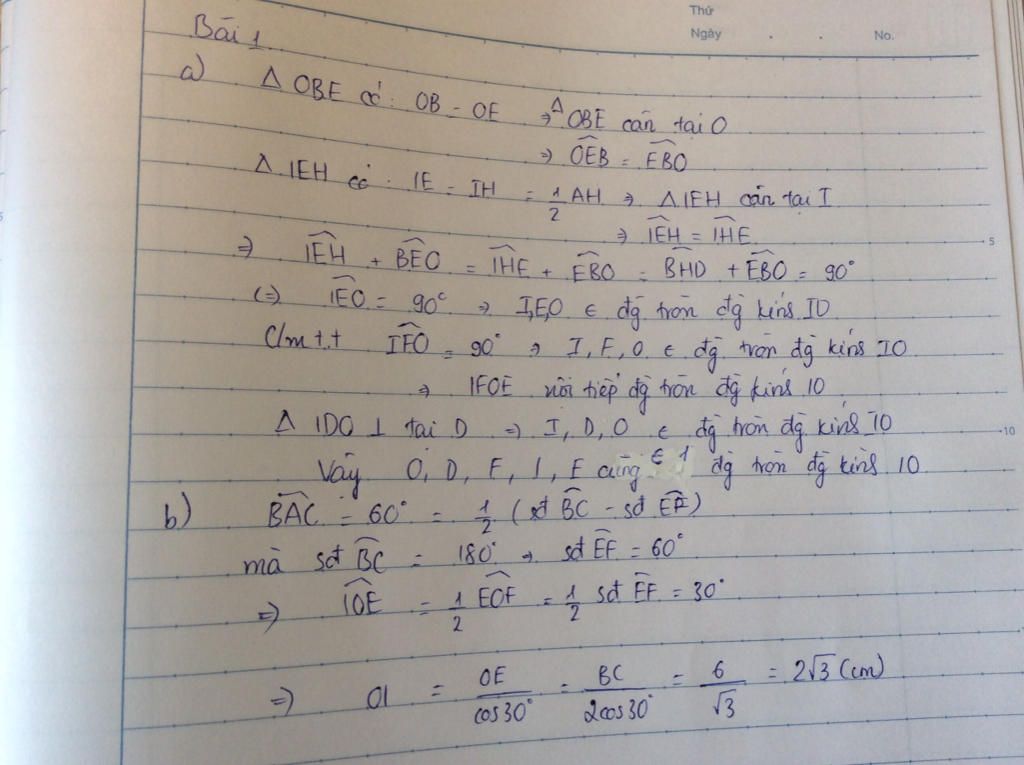 Thứ
Ngày . . No.
Bài 1
a) Δ OBE có: OB = OE ⇒ Δ OBE cân tại O
⇒ \widehat{OEB} = \widehat{EBO}
Δ IEH có: IE = IH = \frac{1}{2} AH ⇒ Δ IEH cân tại I
⇒ \widehat{IEH} = \widehat{IHE}
⇒ \widehat{IEH} + \widehat{BEO} = \widehat{IHE} + \widehat{EBO} = \widehat{BHD} + \widehat{EBO} = 90°
(=) \widehat{IEO} = 90° ⇒ I,E,O ∈ đg tròn đg kính IO
C/m t.t \widehat{IFO} = 90° ⇒ I, F, O ∈ đg tròn đg kính IO
⇒ IFOE nội tiếp đg tròn đg kính IO
Δ IDO ⊥ tại D ⇒ I, D, O ∈ đg tròn đg kính IO
Vậy O, D, F, I, E cùng ∈ 1 đg tròn đg kính IO
b) \widehat{BAC} = 60° = \frac{1}{2} (sđ \widehat{BC} - sđ \widehat{EF})
mà sđ \widehat{BC} = 180° ⇒ sđ \widehat{EF} = 60°
⇒ \widehat{IOE} = \frac{1}{2} \widehat{EOF} = \frac{1}{2} sđ \widehat{EF} = 30°
⇒ OI = \frac{OE}{cos30°} = \frac{BC}{2cos30°} = \frac{6}{\sqrt{3}} = 2\sqrt{3} (cm)
5
10